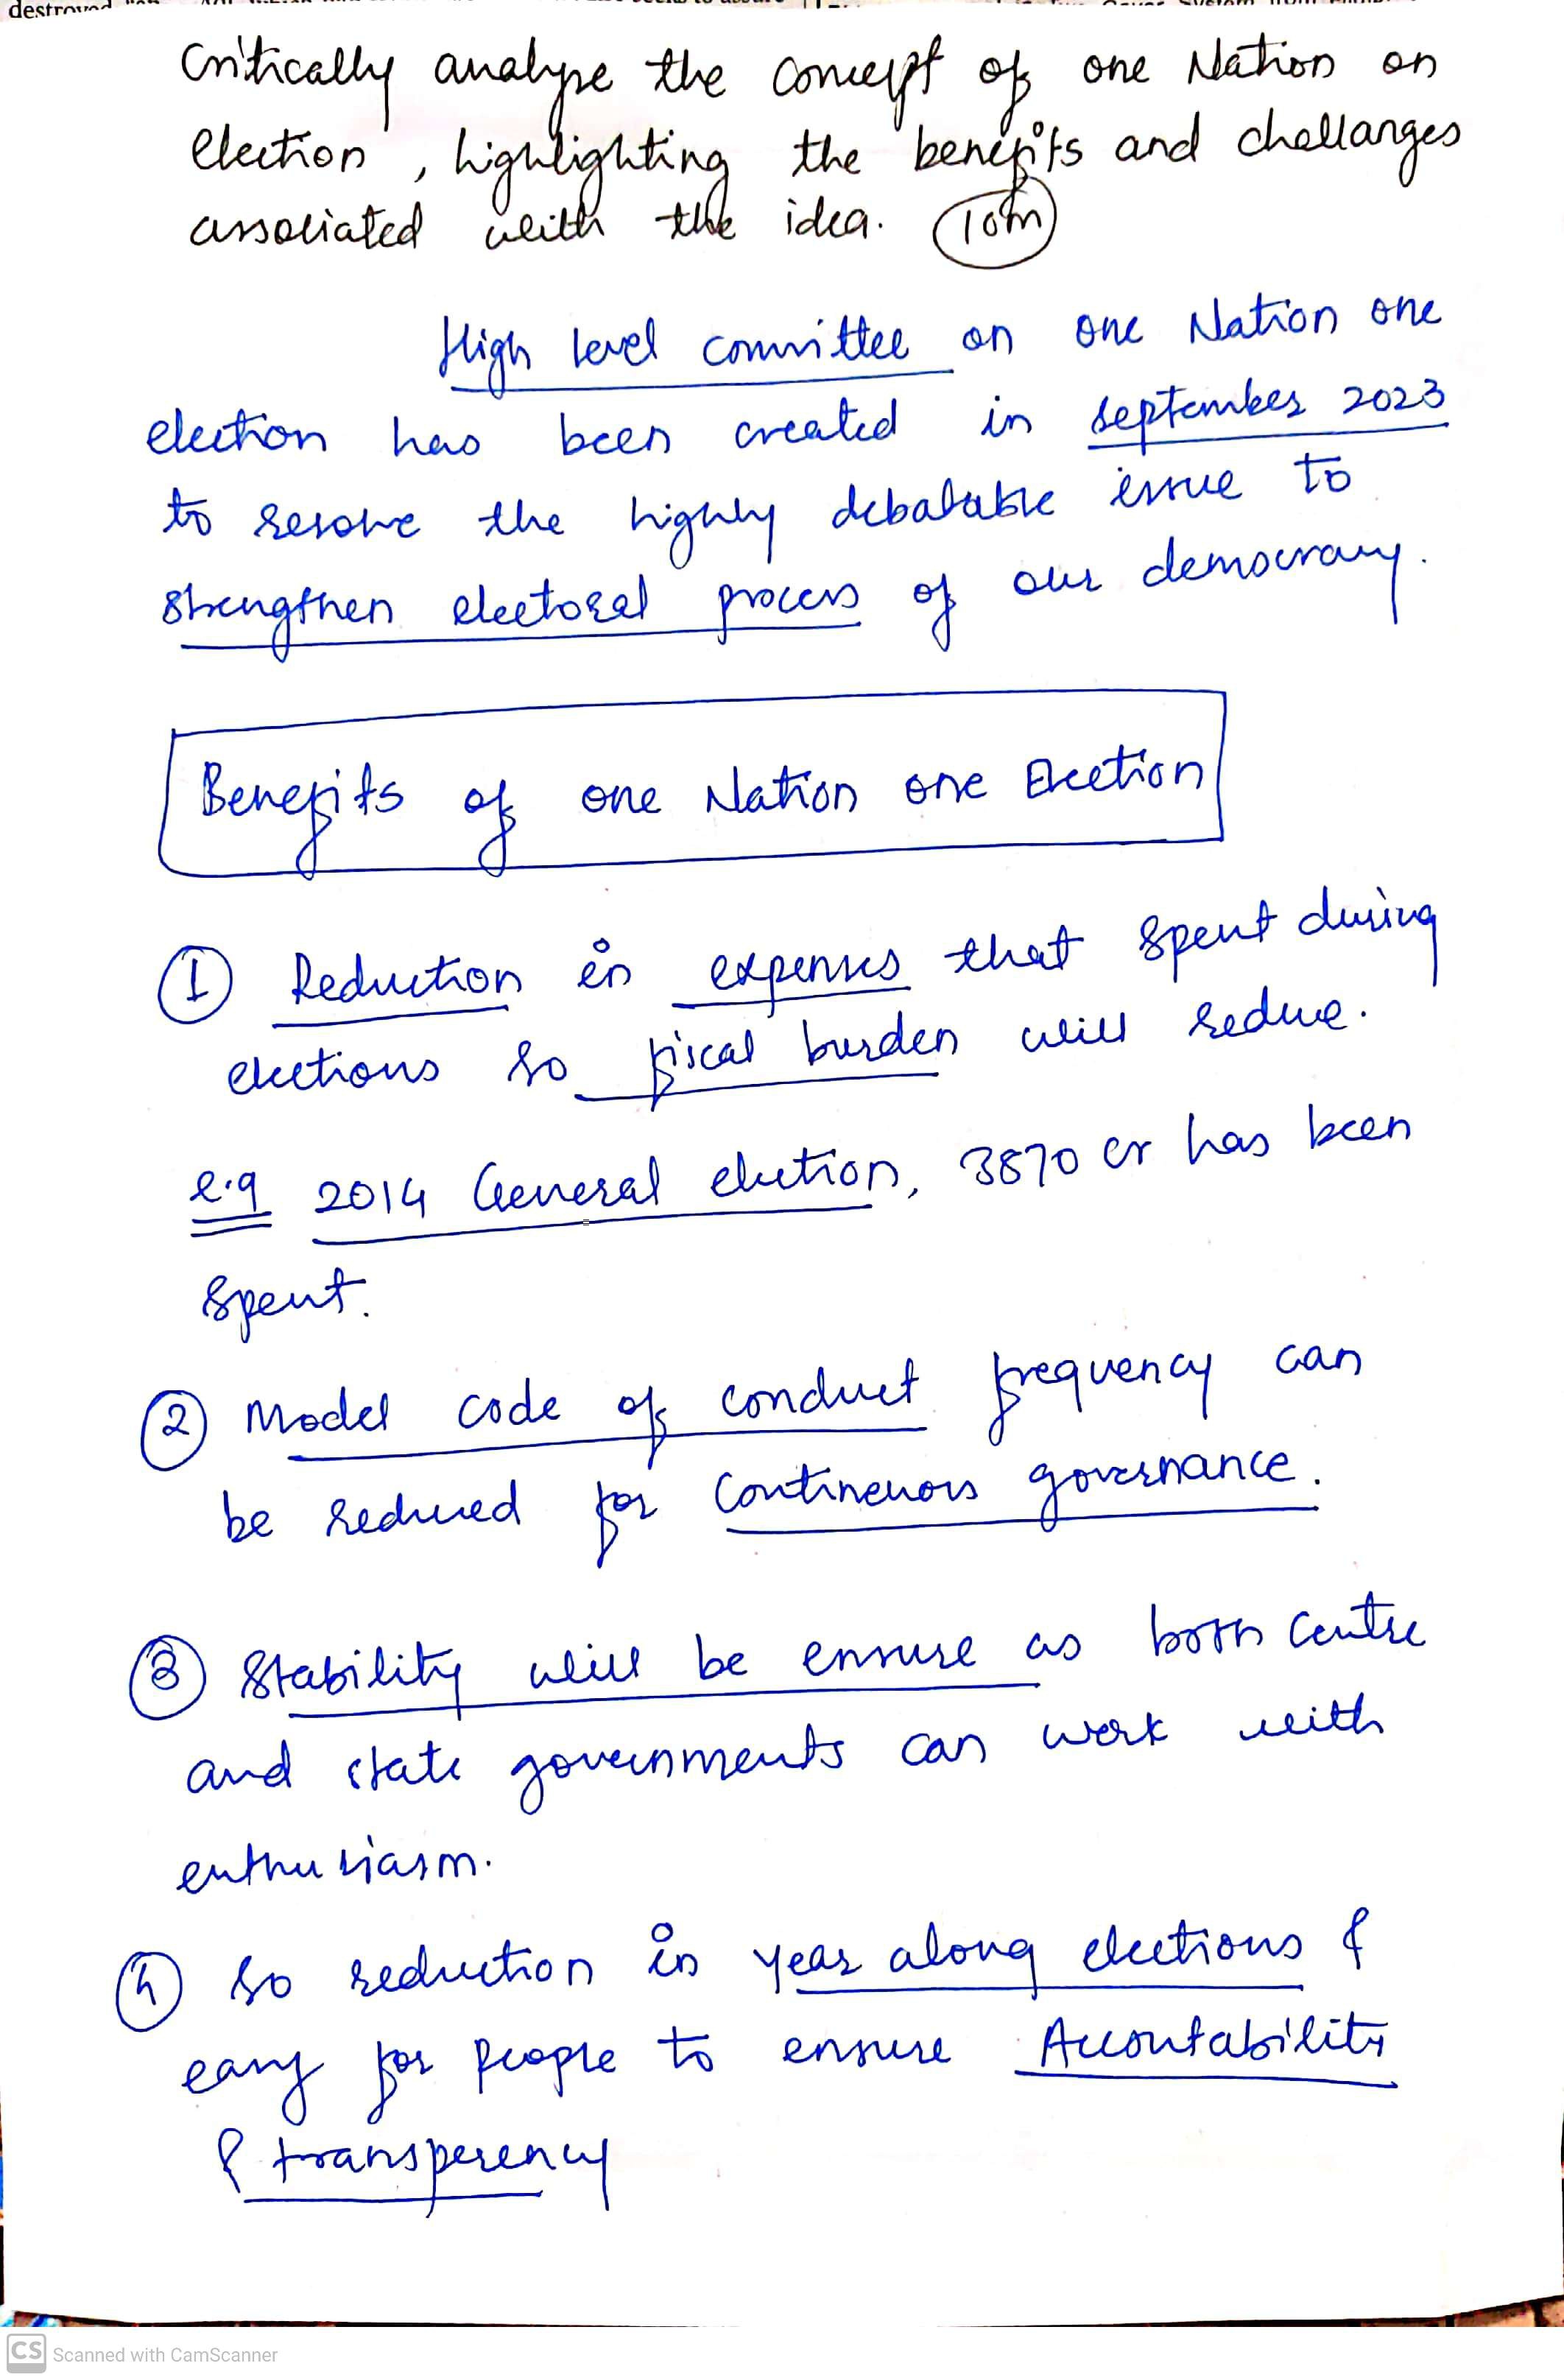 destroyed
Critically analyse the concept of one Nation on
Election, highlighting the benefits and challanges
associated with the idea. 10m
High level committee on one Nation one
election has been created in september 2023
to resolve the highly debatable issue to
strengthen electoral process of our democracy.
Benefits of one Nation one Election
① Reduction in expenses that spent during
elections so fiscal burden will reduce.
e.g 2014 General election, 3870 cr has been
spent.
② Model code of conduct frequency can
be reduced for continenous governance.
③ Stability will be ensure as both centre
and state governments can work with
enthusiasm.
④ so reduction in year along elections &
easy for people to ensure Accontability
& transperency
CS Scanned with CamScanner